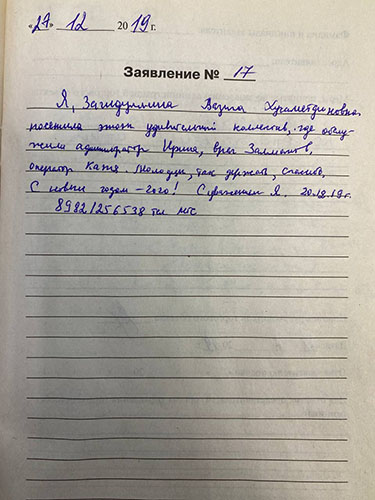 «27» 12 2019 г.
Заявление № 17
Я, Загидуллина Вазига
посетила этот удивительный коллектив, где обслу-
жили администратор Ирина, врач
оператор Катя. Молодцы, так держать, спасибо.
С новым годом – 2020! С уважением Я. 20.12.19г.
89821256538 тел мтс